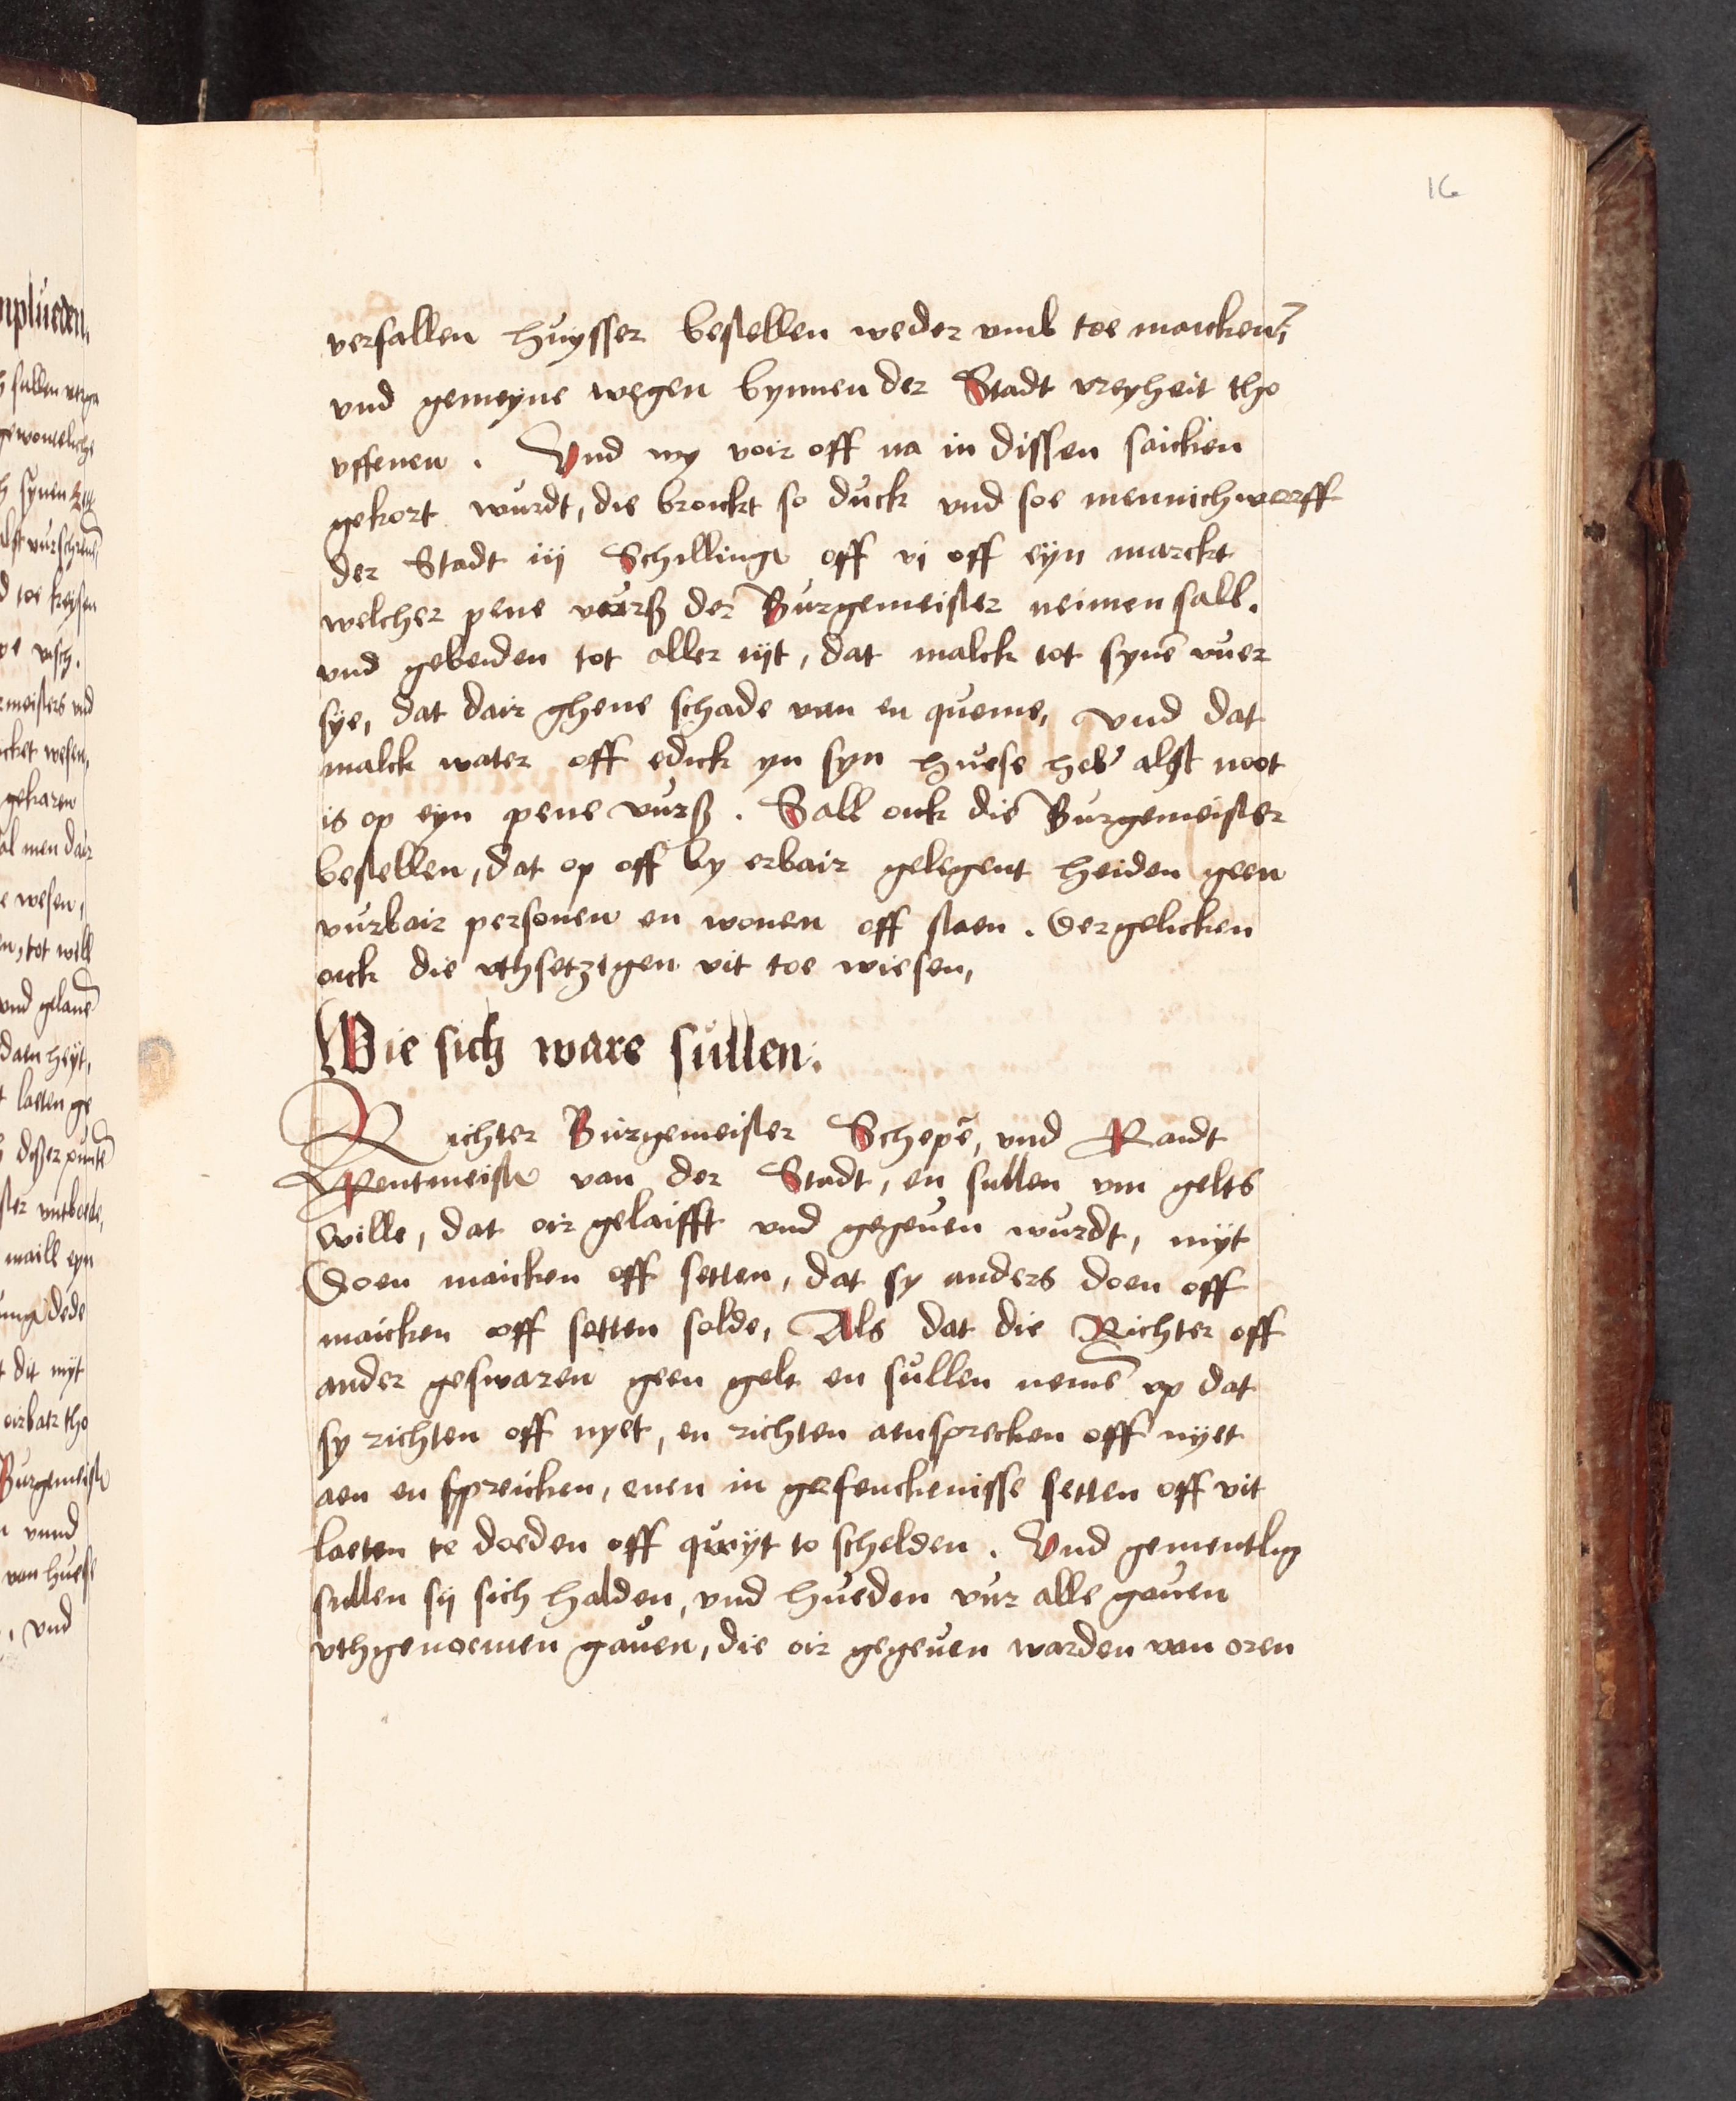 16
verfallen huysser bestellen weder vmb toe maicken,
vnd gemeyne wegen bynnen der Stadt vreyheit tho
vffenen . Vnd wy voir off na in dissen saicken
gekort wurdt, die broickt so duck vnd soe mennichwerff
der Stadt iij Schillinge off vj off eyn marckt
welcher pene vurß der Burgemeister neimen sall.
vnd gebeiden tot aller tijt, dat malck tot synē vuer
sye, dat dair ghene schade van en queme, vnd dat
malck water off edick yn syn huese heb alst noot
is op eyn pene vurß . Sall oick die Burgemeister
bestellen, dat op off by erbair gelegent heiden geen
vurbair personen en wonen off staen . Dergelicken
oick die vthsetzigen vit toe wiesen,
Wie sich ware sullen.
Richter Burgemeister Schepē, vnd Raidt
Rentmeister van der Stadt, en sullen vm gelts
wille, dat oir gelaifft vnd gegeuen wurdt, nyt
Doen maicken off setten, dat sy anders doen off
maicken off setten solde, Als dat die Richter off
ander geswaren geen gelt en sullen nemē vp dat
sy richten off nyet, en richten aenspreken off nyet
aen en spreicken, enen in gefenckenisse setten off vit
laeten te doeden off quyt to schelden . Vnd gementlig
sullen sij sich halden, vnd hueden vur alle gauen
vthgenoemen gauen, die oir gegeuen warden van oren